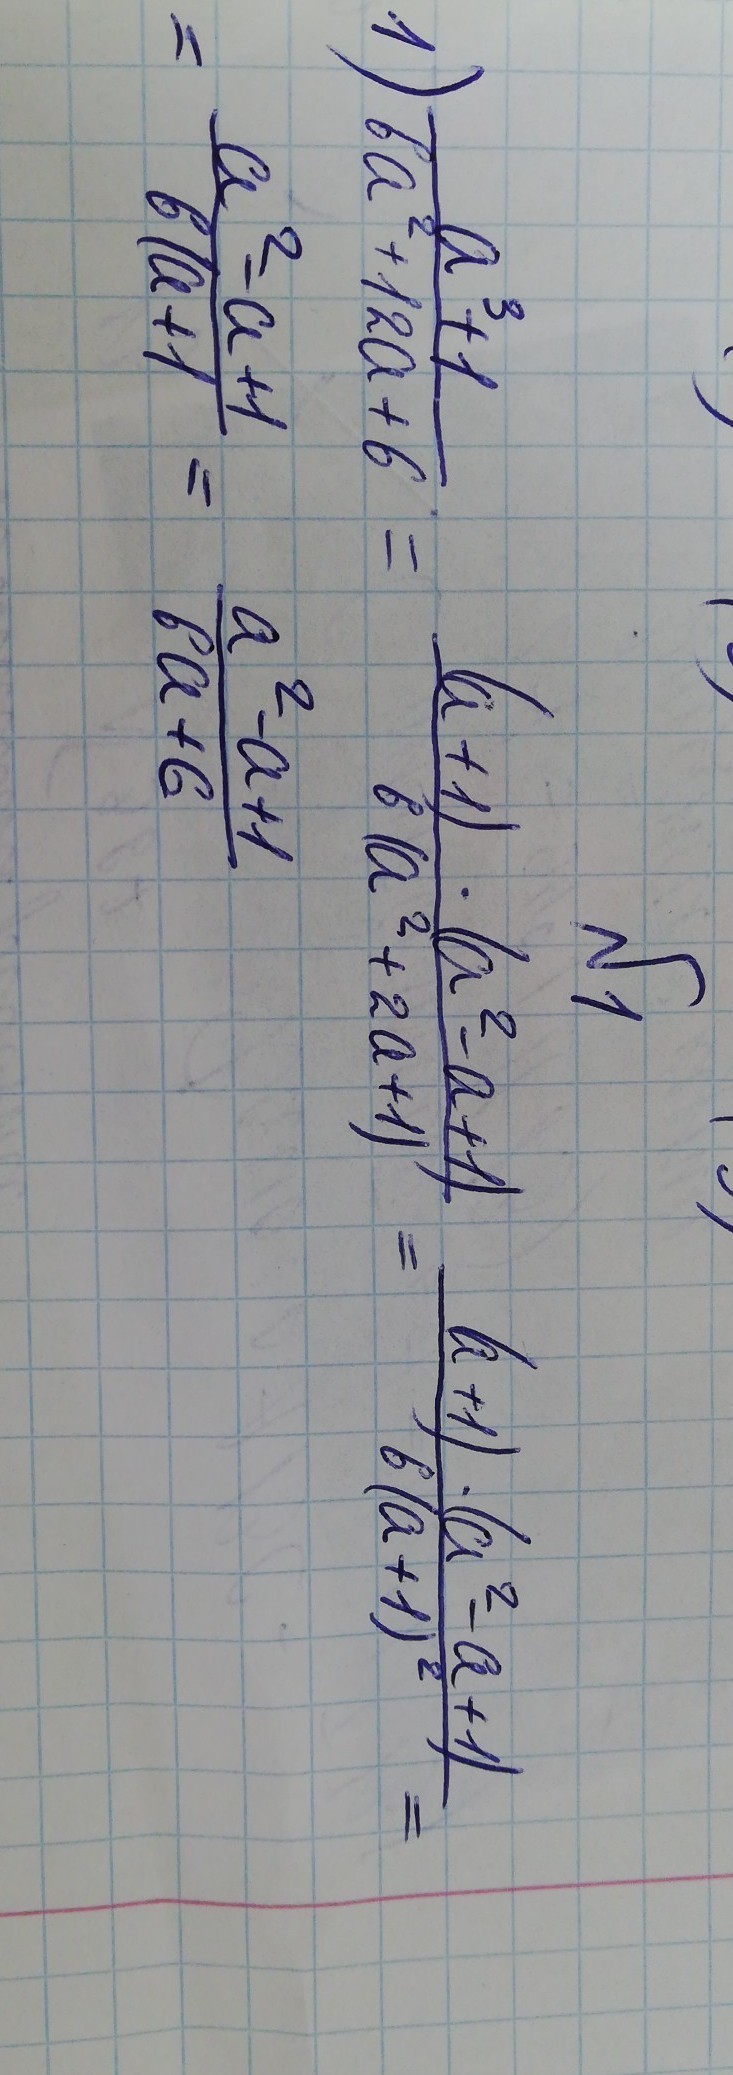 √1
1) (a³+1)/(6a²+12a+6) = ((a+1)·(a²-a+1))/(6(a²+2a+1)) = ((a+1)·(a²-a+1))/(6(a+1)²) =
= (a²-a+1)/(6(a+1) = (a²-a+1)/(6a+6)